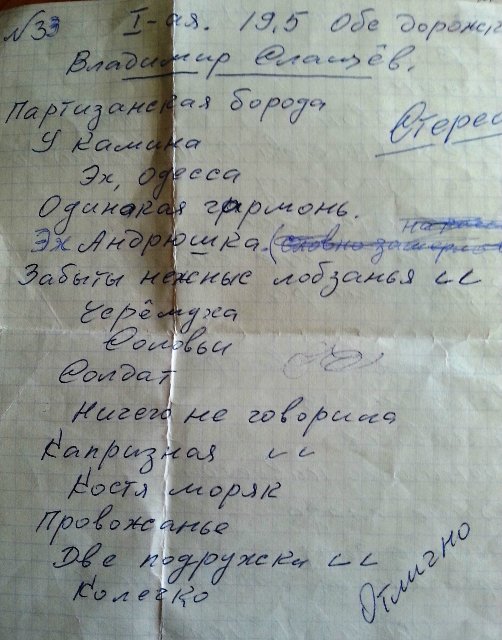 №33 I-ая. 19,5 Обе дорожк
Владимир Слащёв.
Партизанская борода
Стерео
У камина
Эх, Одесса
Одинакая гармонь.
Эх Андрюшка. (словно замерло
Забыты нежные лобзанья ււ
Черёмуха
Соловьи
Солдат
Ничего не говорила
Капризная ււ
Костя моряк
Провожанье
Две подружки ււ
Колечко
Отлично